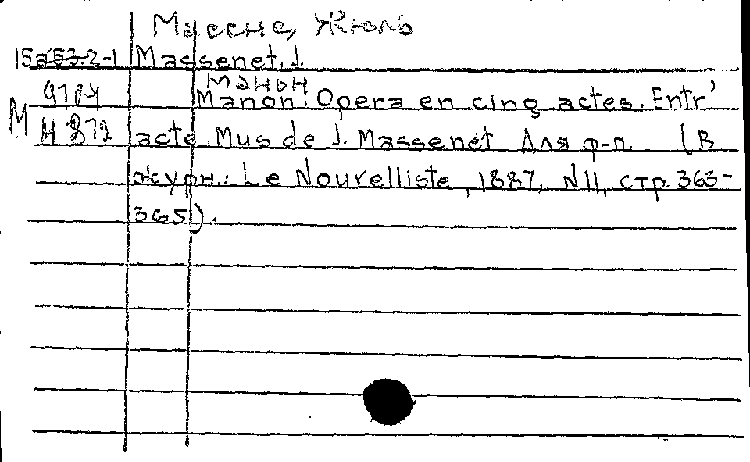 Массне, Жюль
15а532-1 Massenet, J.
Манон
Manon: Opera en cinq actes. Entr'
М
acte. Mus de J. Massenet. Для ф-п. (В
журн.: Le Nouvelliste, 1887, N11, стр. 363-
365).